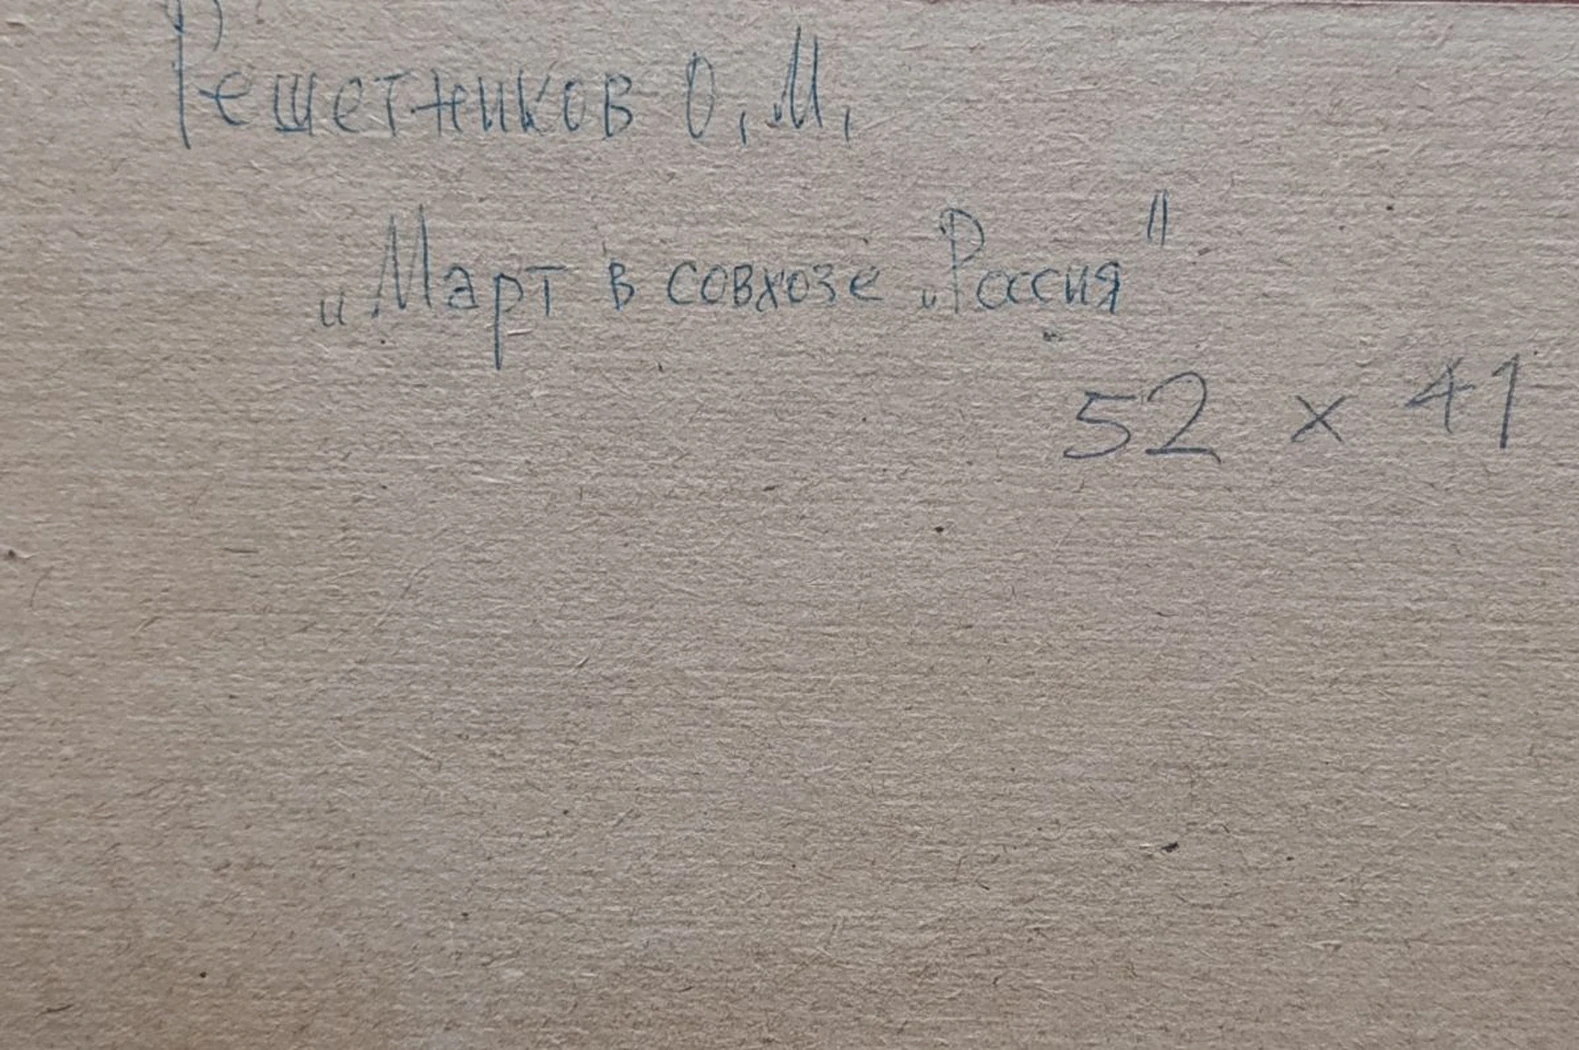 Решетников О.М.
„Март в совхозе „Россия"
52 x 41